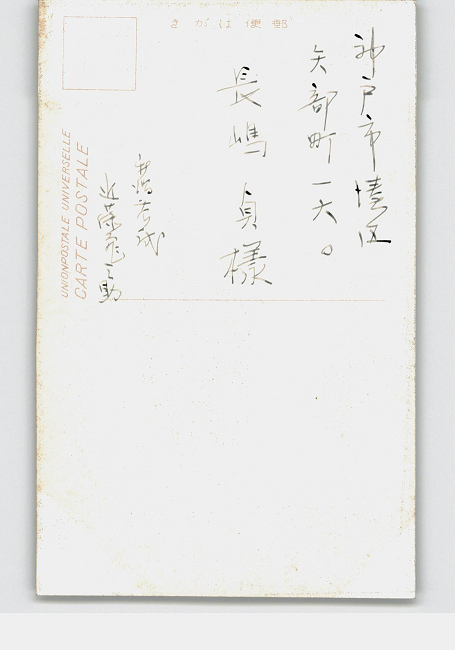 きがは便郵
神戸市湊区
矢部町一六〇
長嶋貞様
近藤
之助
UNIONPOSTALE UNIVERSELLE
CARTE POSTALE